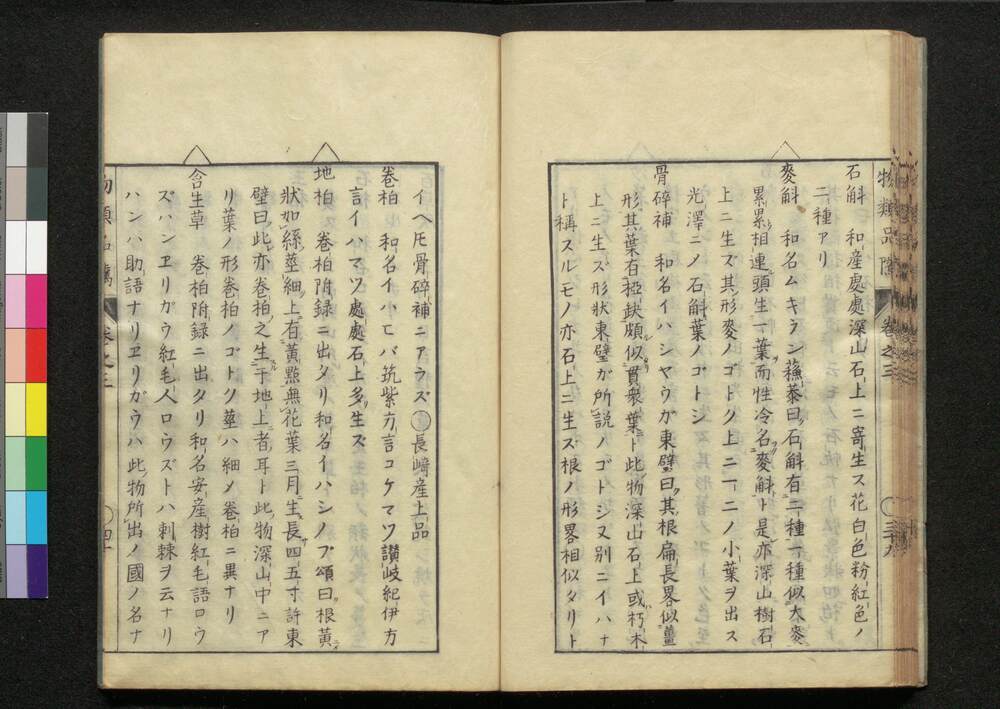 物類品隲 卷之三 三十九
石斛 和産處處深山石上ニ寄生ス花白色粉紅色ノ
二種アリ
麥斛 和名ムキラン蘓恭曰石斛有二種一種似大麥
累累相連頭生一葉而性冷名麥斛ト是亦深山樹石
上ニ生ズ其形麥ノゴトク上ニ一二ノ小葉ヲ出ス
光澤ニノ石斛葉ノゴトシ
骨碎補 和名イハシヤウガ東璧曰其根扁長畧似薑
形其葉有椏缺頗似貫衆葉ト此物深山石上或朽木
上ニ生ズ形狀東璧ガ所説ノゴトシ又別ニイハナ
ト稱スルモノ亦石上ニ生ズ根ノ形畧相似タリト
イヘ𪜈骨碎補ニアラズ 長崎産上品
卷柏 和名イハヒバ筑紫方言コケマツ讃岐紀伊方
言イハマツ處處石上多生ズ
地柏 卷柏附録ニ出タリ和名イハシノブ頌曰根黃
狀如絲莖細上有黃㸃無花葉三月生長四五寸許東
璧曰此亦卷柏之生于地上者耳ト此物深山中ニア
リ葉ノ形卷柏ノゴトク莖ハ細メ卷柏ニ異ナリ
含生草 卷柏附録ニ出タリ和名安産樹紅毛語ロウ
ズハンヱリガウ紅毛人ロウズトハ刺棘ヲ云ナリ
ハンハ助語ナリヱリガウハ此物所出ノ國ノ名ナ
卷之三 四十